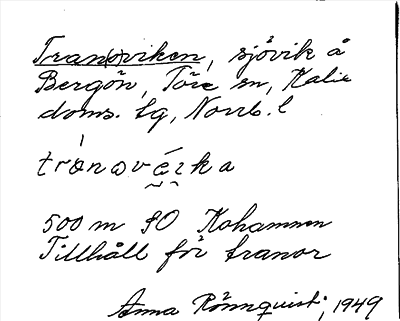 Tran(o)viken, sjövik å
Bergön, Töre sn, Kalix
doms. lg, Norrb. l
500 m SO Kohamnen
Tillhåll för tranor
Anna Rönnquist, 1949